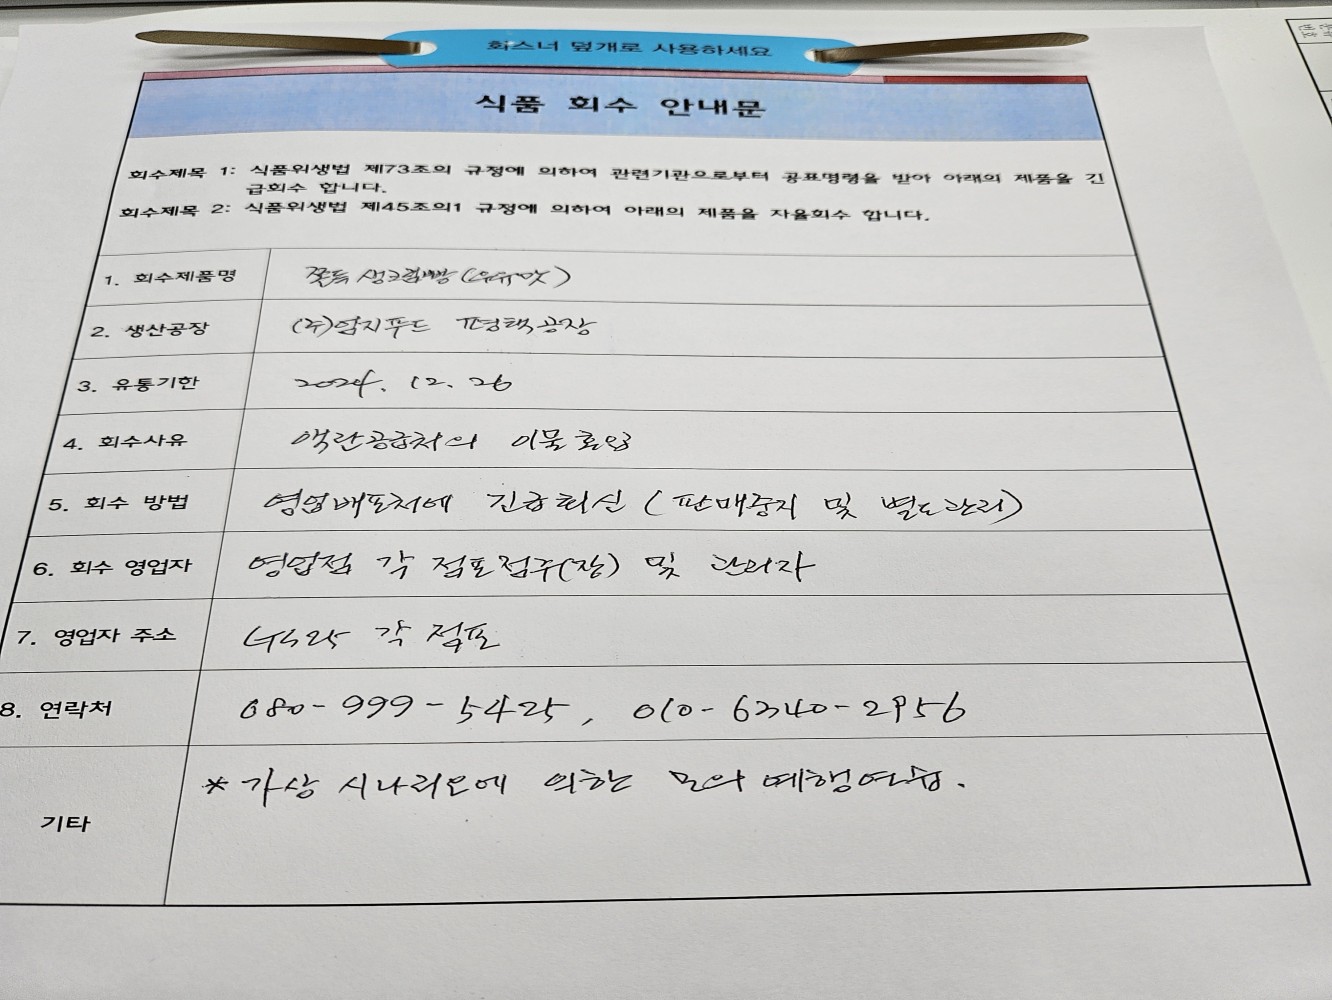 화스너 덮개로 사용하세요
식품 회수 안내문
회수제목 1: 식품위생법 제73조의 규정에 의하여 관련기관으로부터 공표명령을 받아 아래의 제품을 긴
급회수 합니다.
회수제목 2: 식품위생법 제45조의1 규정에 의하여 아래의 제품을 자율회수 합니다.
1. 회수제품명 쫄득 생크림빵(우유맛)
2. 생산공장 (주)암지푸드 평택공장
3. 유통기한 2024. 12. 26
4. 회수사유 액란공급처의 이물 혼입
5. 회수 방법 영업배포처에 긴급회신 (판매중지 및 별도관리)
6. 회수 영업자 영업점 각 점포점주(장) 및 관리자
7. 영업자 주소 GS25 각 점포
8. 연락처 080-999-5425, 010-6340-2956
기타 * 가상 시나리오에 의한 모의 예행연습.